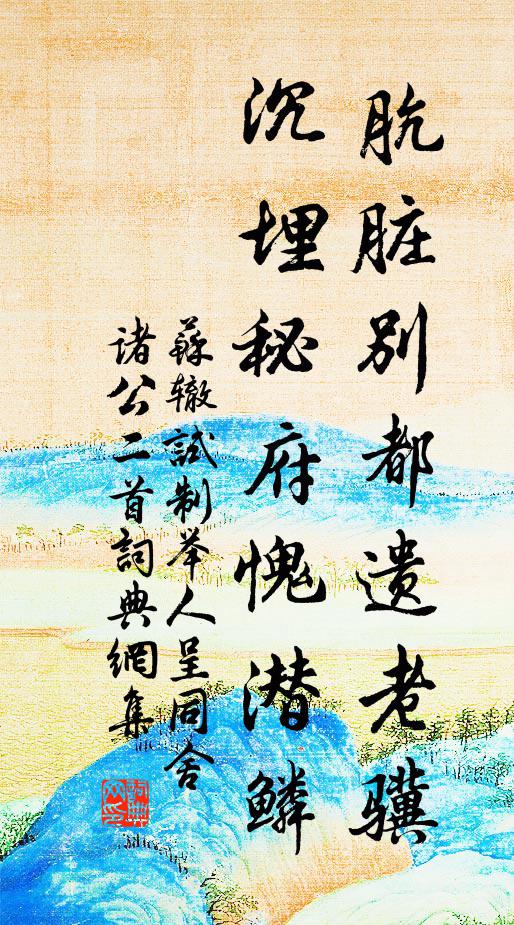 肮脏别都遗老骥
沉埋秘府愧潜鳞
蘇辙試制举人呈同舍
诸公二首詞典網集